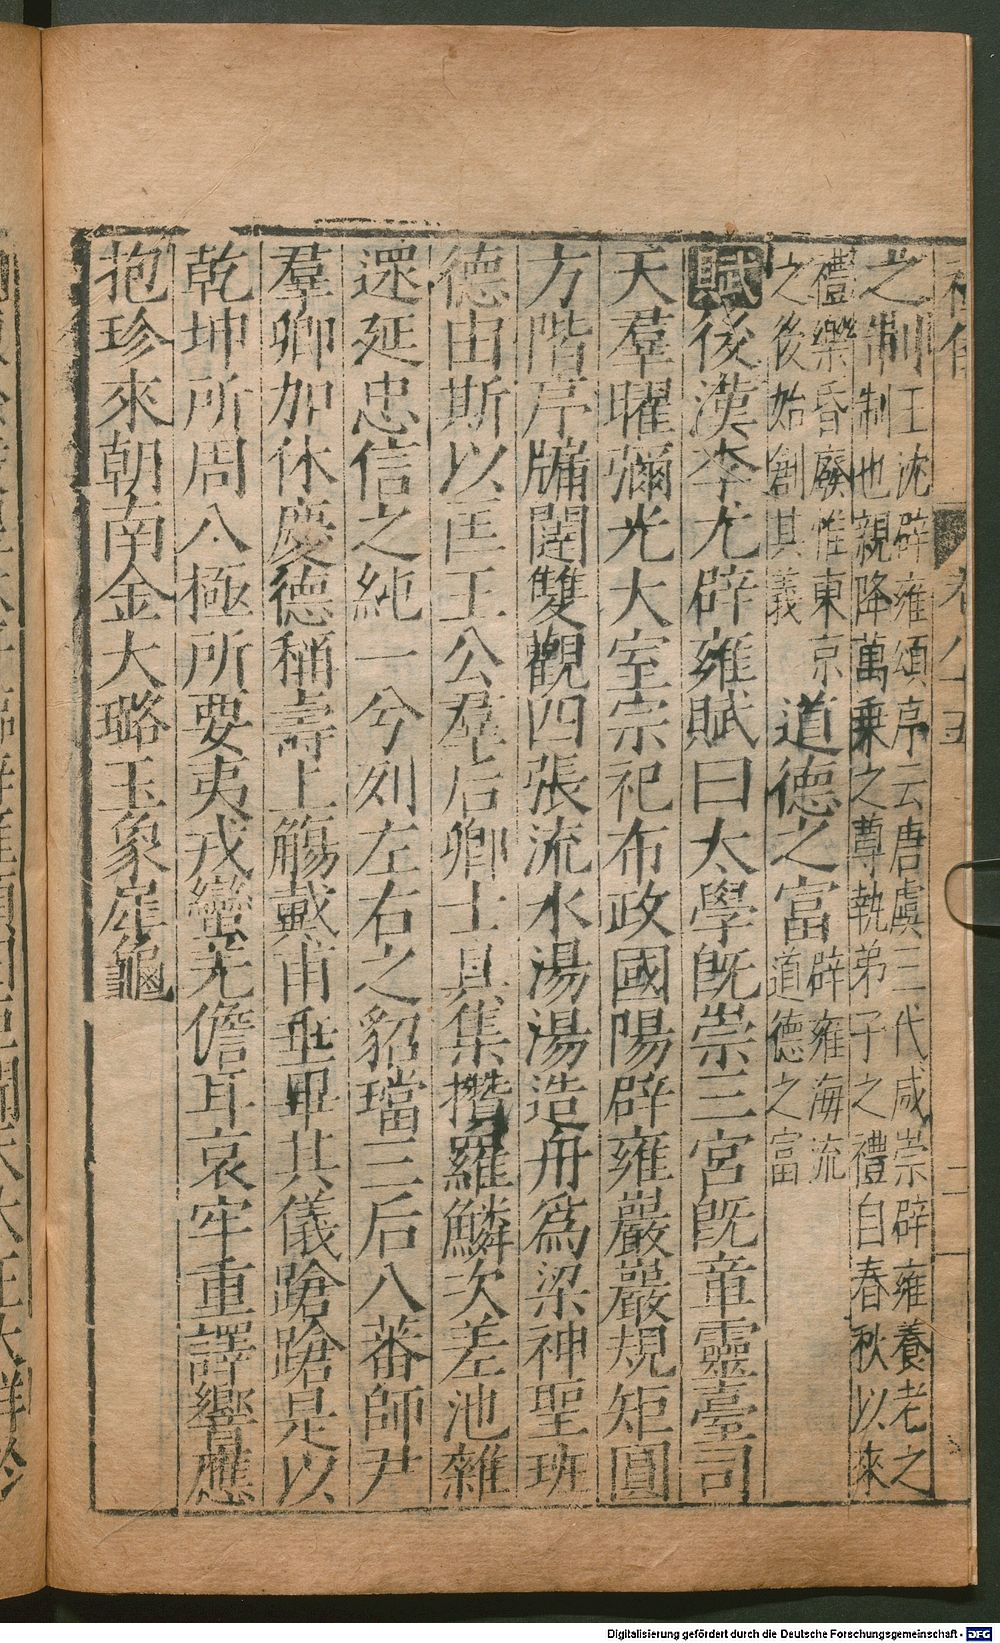 卷八十五 二
之制王沈辟雍頌序云唐虞三代咸崇辟雍養老之
制也親降萬乗之尊執弟子之禮自春秋以來
禮樂昏廢惟東京
之後始創其義
道德之富辟雍海流
道德之富
賦後漢李尤辟雍賦曰太學旣崇三宮旣童靈臺司
天羣曜彌光大室宗祀布政國陽辟雍巖巖規矩圓
方階序牗闥雙觀四張流水湯湯造舟爲梁神聖班
德由斯以匡王公羣后卿士具集攢羅鱗次差池雜
遝延忠信之純一兮列左右之貂璫三后八蕃師尹
羣卿加休慶德稱壽上觴戴甫垂畢其儀蹌蹌是以
乾坤所周八極所要夷戎蠻羌儋耳哀牢重譯響應
抱珍來朝南金大璐玉象犀龜
Digitalisierung gefördert durch die Deutsche Forschungsgemeinschaft - DFG